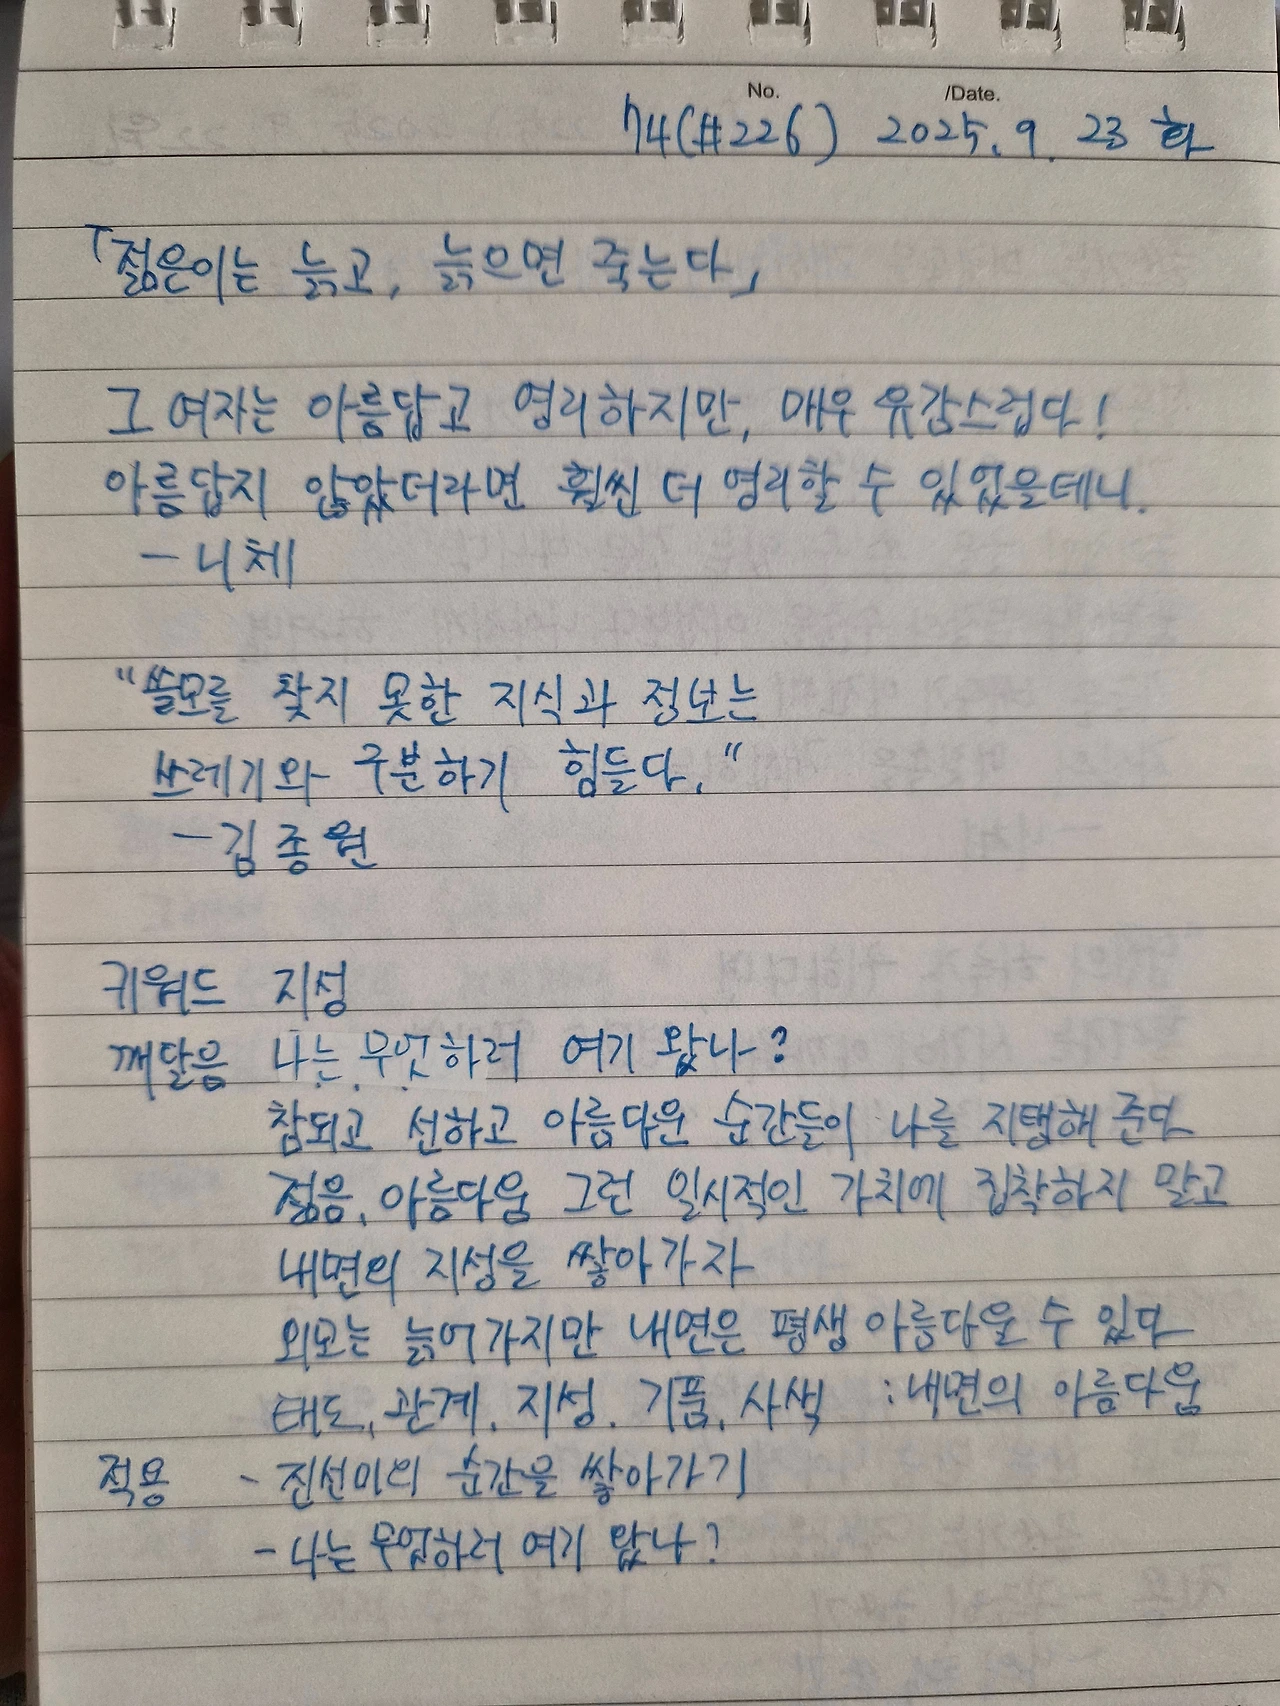 No. /Date.
74(#226) 2025. 9. 23 화
「젊은이는 늙고, 늙으면 죽는다」
그 여자는 아름답고 영리하지만, 매우 유감스럽다!
아름답지 않았더라면 훨씬 더 영리할 수 있었을테니.
- 니체
"쓸모를 찾지 못한 지식과 정보는
쓰레기와 구분하기 힘들다."
- 김종원
키워드 지성
깨달음 나는 무엇하러 여기 왔나?
참되고 선하고 아름다운 순간들이 나를 지탱해 준다
젊음, 아름다움 그런 일시적인 가치에 집착하지 말고
내면의 지성을 쌓아가자
외모는 늙어가지만 내면은 평생 아름다울 수 있다
태도, 관계, 지성, 기품, 사색 : 내면의 아름다움
적용 - 진선미의 순간을 쌓아가기
- 나는 무엇하러 여기 왔나?